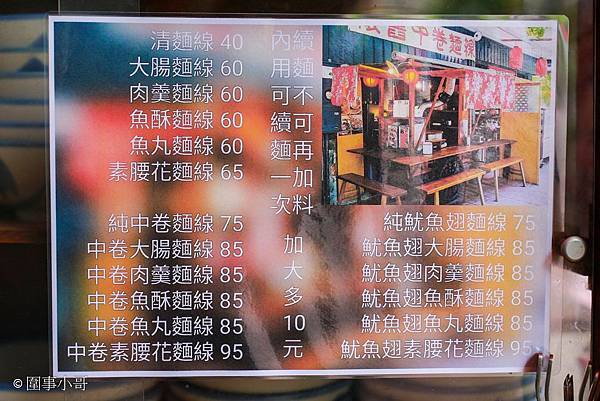 清麵線 40
大腸麵線 60
肉羹麵線 60
魚酥麵線 60
魚丸麵線 60
素腰花麵線 65
純中卷麵線 75
中卷大腸麵線 85
中卷肉羹麵線 85
中卷魚酥麵線 85
中卷魚丸麵線 85
中卷素腰花麵線 95
內用可續麵一次
續麵不可再加料
加大多10元
中卷麵線
純魷魚翅麵線 75
魷魚翅大腸麵線 85
魷魚翅肉羹麵線 85
魷魚翅魚酥麵線 85
魷魚翅魚丸麵線 85
魷魚翅素腰花麵線 95
© 圍事小哥